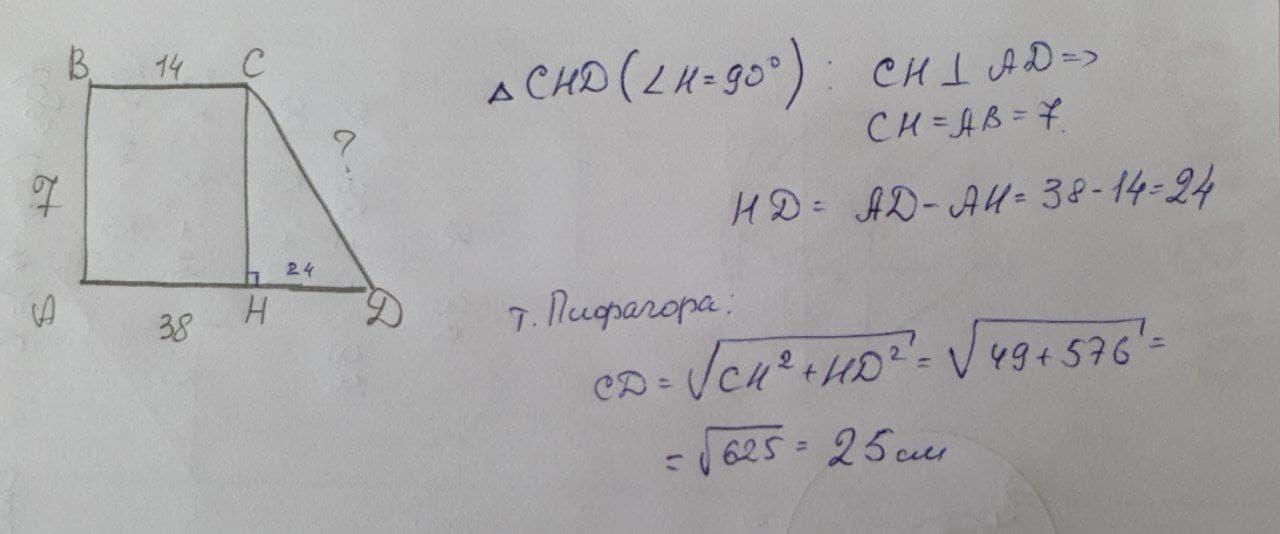 B 14 C
7
?
24
A 38 H D
△ CHD (∠H=90°) : CH ⊥ AD =>
CH = AB = 7.
HD = AD - AH = 38 - 14 = 24
т. Пифагора:
CD = √CH² + HD² = √49 + 576 =
= √625 = 25 см